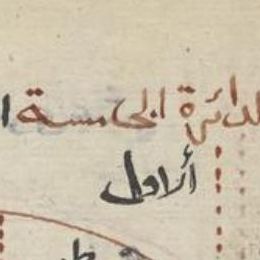 الدائرة الخامسة
الاول